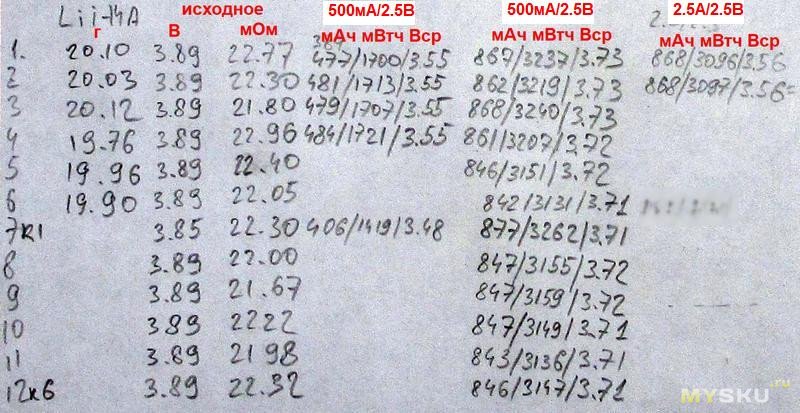 Lii-14A исходное 500мА/2.5В 500мА/2.5В 2.5А/2.5В
г В мОм мАч мВтч Вср мАч мВтч Вср мАч мВтч Вср
1. 20.10 3.89 22.77 477/1700/3.55 867/3237/3.73 868/3096/3.56
2 20.03 3.89 22.30 481/1713/3.55 862/3219/3.73 868/3097/3.56=
3 20.12 3.89 21.80 479/1707/3.55 868/3240/3.73
4 19.76 3.89 22.96 484/1721/3.55 861/3207/3.72
5 19.96 3.89 22.40 846/3151/3.72
6 19.90 3.89 22.05 842/3131/3.71
7к1 3.85 22.30 406/1419/3.48 877/3262/3.71
8 3.89 22.00 847/3155/3.72
9 3.89 21.67 847/3159/3.72
10 3.89 2222 847/3149/3.71
11 3.89 21 98 843/3136/3.71
12к6 3.89 22.32 846/3147/3.71
MYSKU.ru